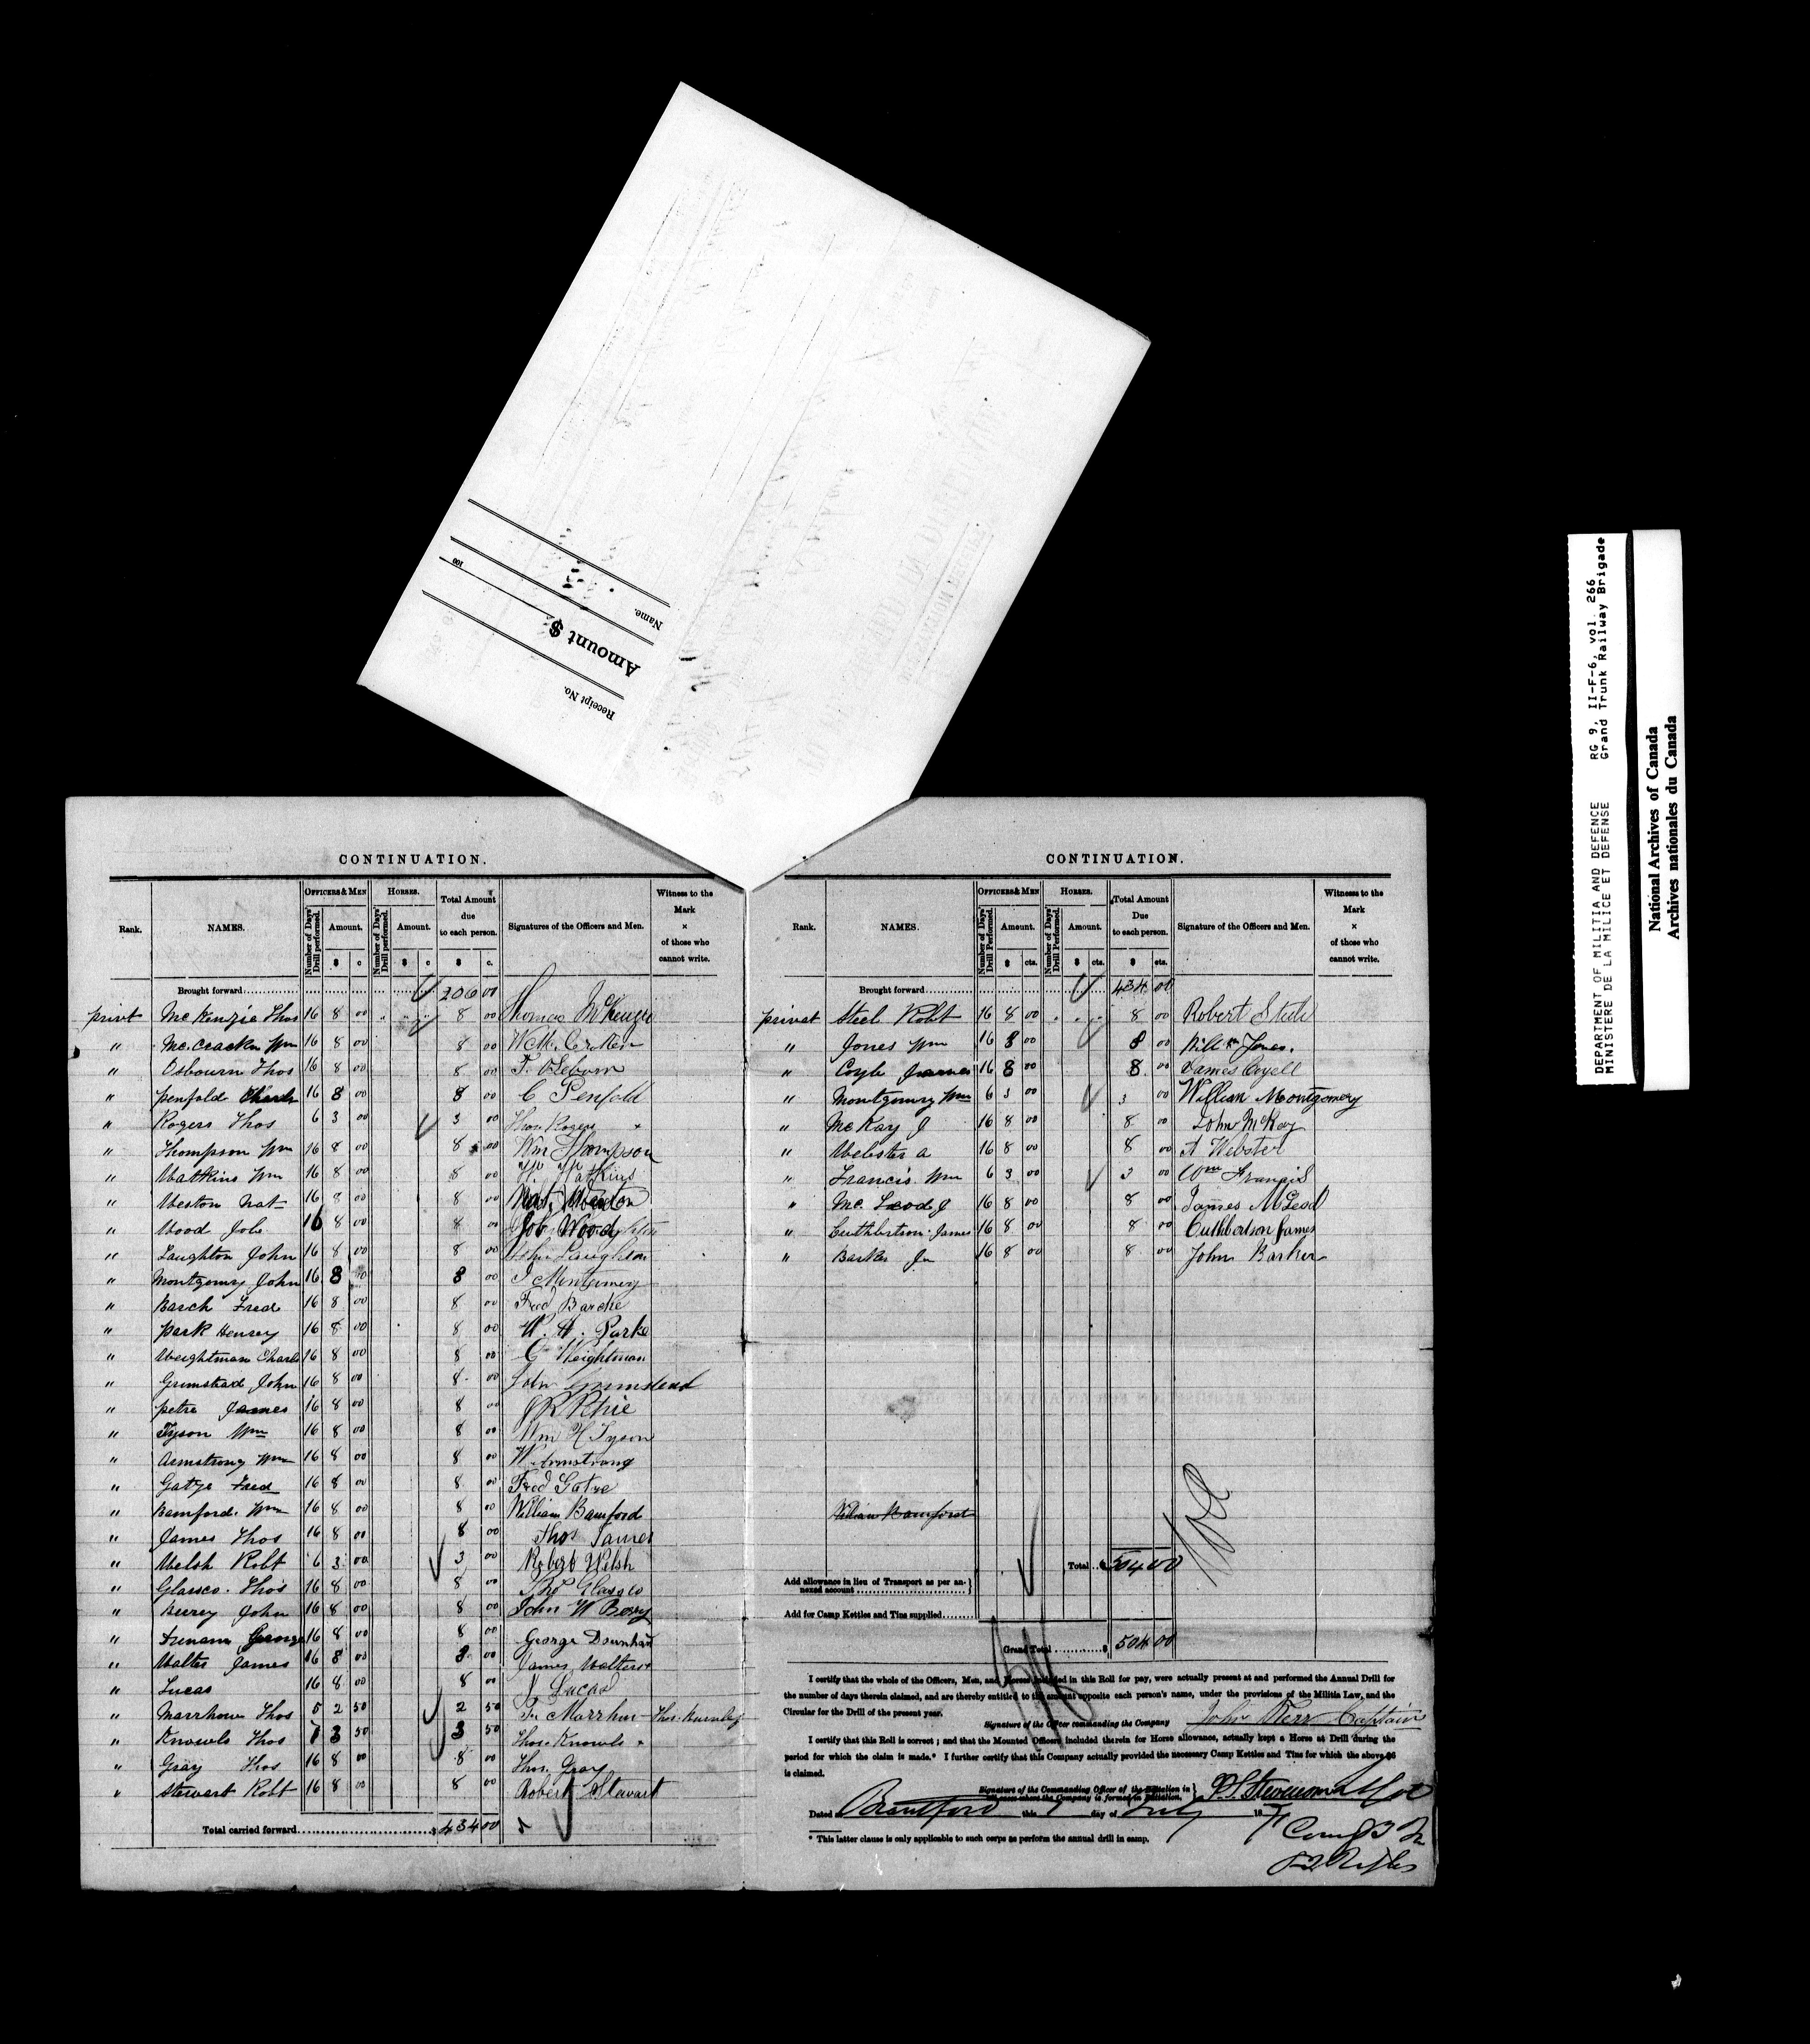 Receipt No.
Amount $
100
Name.
CONTINUATION.
Rank. NAMES. OFFICERS & MEN HORSES. Total Amount due to each person. Signatures of the Officers and Men. Witness to the Mark × of those who cannot write.
Number of Days' Drill performed. Amount. Number of Days' Drill performed. Amount.
$ c $ c $ c.
Brought forward 206 00
privt McKenzie Thos 16 8 00 8 00 Thomas McKenzie
" McCracken Wm 16 8 00 8 00
" Osbourn Thos 16 8 00 8 00 T. Osborn
" penfold Charls 16 8 00 8 00 C Penfold
" Rogers Thos 6 3 00 3 00 Thos Rogers
" Thompson Wm 16 8 00 8 00 Wm Thompson
" Watkins Wm 16 8 00 8 00 W. Watkins
" Weston Nat 16 8 00 8 00 Nat. Weston
" Wood Jobe 16 8 00 8 00 Job Wood
" Laughton John 16 8 00 8 00 John Laughton
" Montgomry John 16 8 00 8 00 J Montgomery
" Barch Fred 16 8 00 8 00 Fred Barche
" park Henrey 16 8 00 8 00 W. H. Parke
" Weightman Charls 16 8 00 8 00 C Weightman
" Grimstead John 16 8 00 8 00 John Grimstead
" petre James 16 8 00 8 00 J R Petrie
" Tyson Wm 16 8 00 8 00 Wm H Tyson
" Armstrong Wm 16 8 00 8 00 W. Armstrong
" Gatze Fred 16 8 00 8 00 Fred Gatze
" Bamford. Wm 16 8 00 8 00 William Bamford
" James Thos 16 8 00 8 00 Thos James
" Welsh Robt 6 3 00 3 00 Robert Welsh
" Glassco. Thos 16 8 00 8 00 Thos Glassco
" Beirey John 16 8 00 8 00 John W Berry
" George 16 8 00 8 00 George Downham
" Walter James 16 8 00 8 00 James Walters
" Lucas 16 8 00 8 00 J Lucas
" Marrhow Thos 5 2 50 2 50
" Knowls Thos 7 3 50 3 50 Thos Knowls
" Gray Thos 16 8 00 8 00 Thos. Gray
" Stewart Robt 16 8 00 8 00 Robert Stewart
Total carried forward $ 434 00
CONTINUATION.
Rank. NAMES. OFFICERS & MEN HORSES. Total Amount Due to each person. Signature of the Officers and Men. Witness to the Mark × of those who cannot write.
Number of Days' Drill Performed. Amount. Number of Days' Drill Performed. Amount.
$ cts. $ cts. $ cts.
Brought forward 434 00
privat Steel Robt 16 8 00 8 00 Robert Steele
" Jones Wm 16 8 00 8 00 Jones.
" Coyle James 16 8 00 8 00 James Coyell
" Montgomry Wm 6 3 00 3 00 William Montgomery
" McKay J 16 8 00 8 00 John McKay
" Webster A 16 8 00 8 00 A Webster
" Francis Wm 6 3 00 3 00 Wm Francis
" Mc. Leod J 16 8 00 8 00 James McLeod
" Cuthbertson James 16 8 00 8 00 Cuthbertson James
" Barker Jn 16 8 00 8 00 John Barker
William Bamford
Total $ 504 00
Add allowance in lieu of Transport as per annexed account
Add for Camp Kettles and Tins supplied
Grand Total $ 504 00
I certify that the whole of the Officers, Men, and Horses included in this Roll for pay, were actually present at and performed the Annual Drill for
the number of days therein claimed, and are thereby entitled to the amount opposite each person's name, under the provisions of the Militia Law, and the
Circular for the Drill of the present year.
Signature of the Officer commanding the Company John Kerr Captain
I certify that this Roll is correct; and that the Mounted Officers included therein for Horse allowance, actually kept a Horse at Drill during the
period for which the claim is made.* I further certify that this Company actually provided the necessary Camp Kettles and Tins for which the above $
is claimed.
Signature of the Commanding Officer of the Battalion in
cases where the Company is formed in Battalion.
Dated Brantford this 7 day of July 1871
* This latter clause is only applicable to such corps as perform the annual drill in camp.
DEPARTMENT OF MILITIA AND DEFENCE RG 9, II-F-6, vol. 266
MINISTERE DE LA MILICE ET DEFENSE Grand Trunk Railway Brigade
National Archives of Canada
Archives nationales du Canada